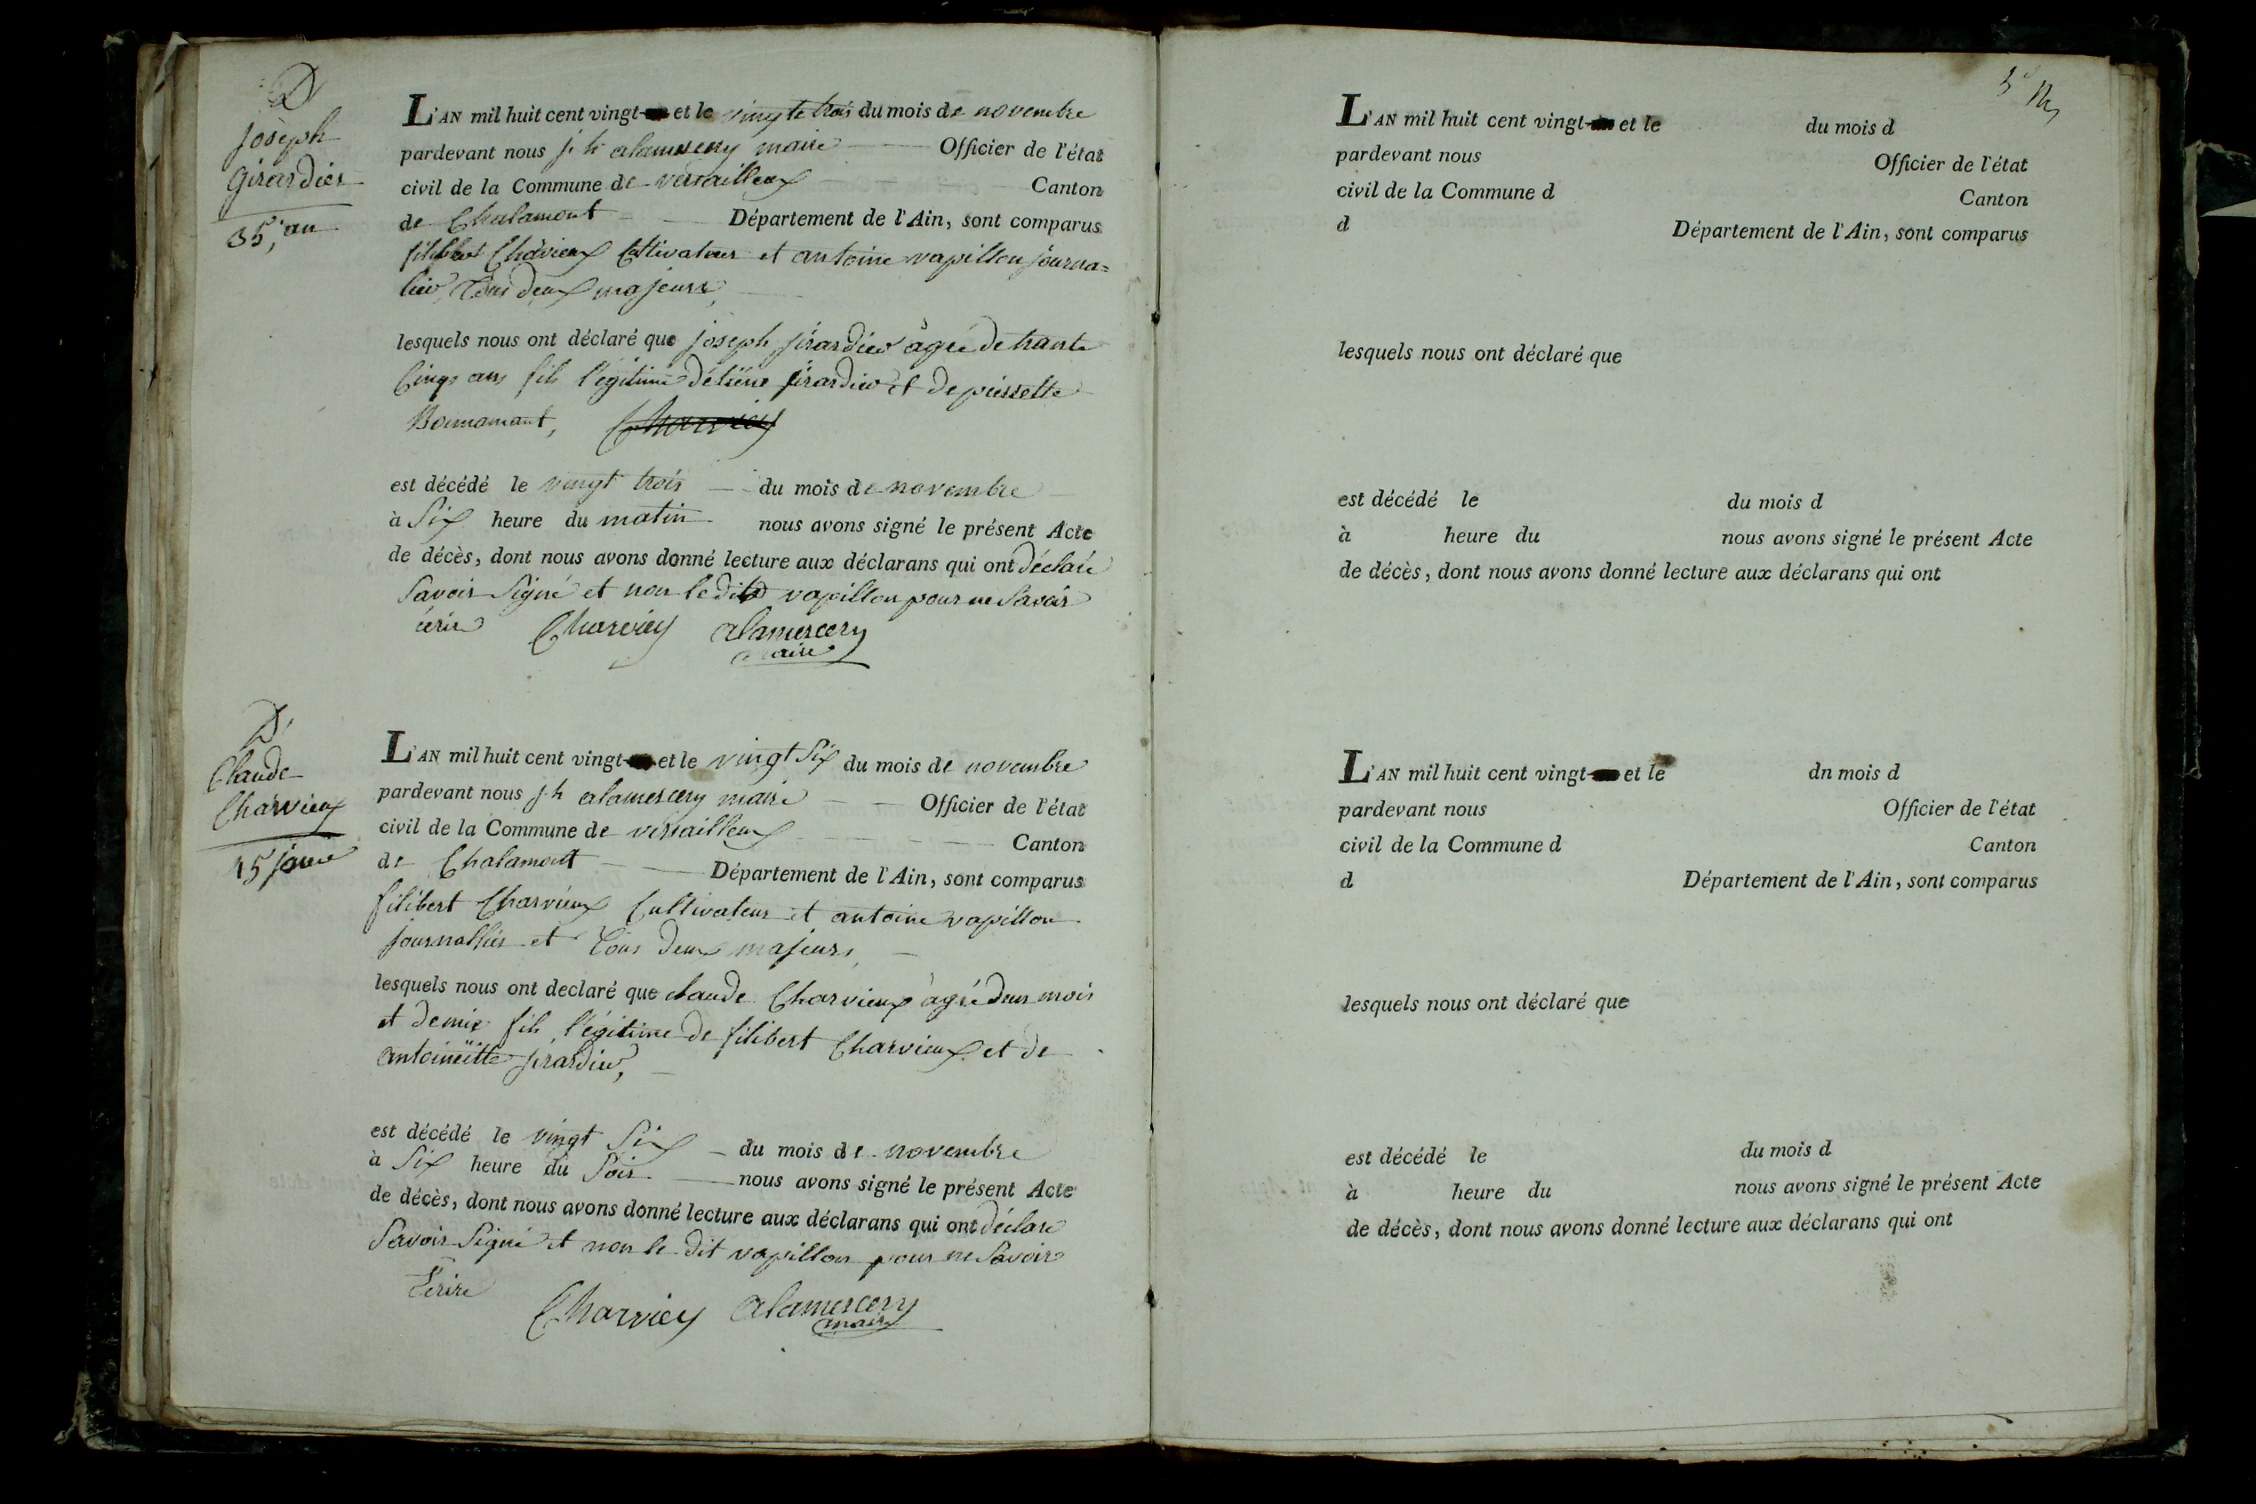 D
joseph
girardier
35, an
L'AN mil huit cent vingt- et le vingte trois du mois de novembre
pardevant nous j h alamercery maire Officier de l'état
civil de la Commune de versailleux Canton
de Chalamont Département de l'Ain, sont comparus
filibert Charvieux Cultivateur et antoine vapillon journa=
lier, tous deux majeurs,
lesquels nous ont déclaré que joseph jirardier âgée de trante
Cinqs ans fils légitime détiene jirardier et de pierrette
Bonnamant,
est décédé le vingt trois du mois de novembre
à Six heure du matin nous avons signé le présent Acte
de décès, dont nous avons donné lecture aux déclarans qui ont déclaré
Savoir Signé et non le dit vapillon pour ne Savoir
écrire Charviey alamercery
maire
D
Claude
Charvieux
15 joure
L'AN mil huit cent vingt- et le vingt Six du mois de novembre
pardevant nous j h alamercery maire Officier de l'état
civil de la Commune de versailleux Canton
de Chalamont Département de l'Ain, sont comparus
filibert Charvieux Cultivateur et antoine vapillon
journallier et tous deux majeurs,
lesquels nous ont declaré que claude Charvieux âgée deux mois
et demie fils légitime de filibert Charvieux et de
antoinëtte jirardier,
est décédé le vingt Six du mois de novembre
à Six heure du Soir nous avons signé le présent Acte
de décès, dont nous avons donné lecture aux déclarans qui ont déclaré
Savoir Signé et non le dit vapillon pour ne Savoir
Écrire
Charviey alamercery
maire
L'AN mil huit cent vingt- et le du mois d
pardevant nous Officier de l'état
civil de la Commune d Canton
d Département de l'Ain, sont comparus
lesquels nous ont déclaré que
est décédé le du mois d
à heure du nous avons signé le présent Acte
de décès, dont nous avons donné lecture aux déclarans qui ont
L'AN mil huit cent vingt- et le dn mois d
pardevant nous Officier de l'état
civil de la Commune d Canton
d Département de l'Ain, sont comparus
lesquels nous ont déclaré que
est décédé le du mois d
à heure du nous avons signé le présent Acte
de décès, dont nous avons donné lecture aux déclarans qui ont